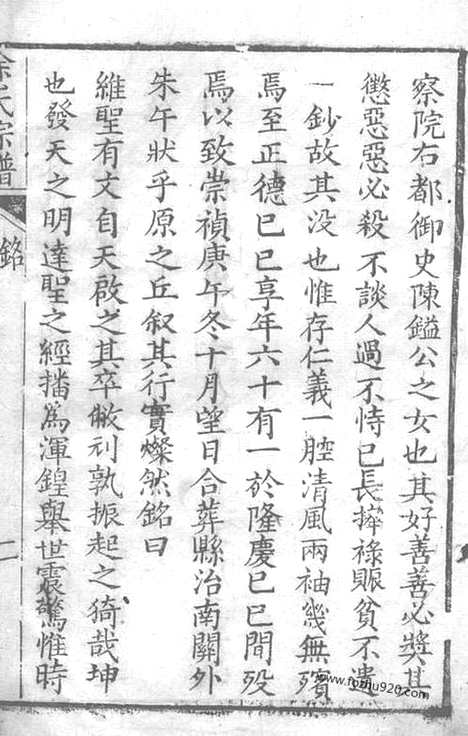 察院右都御史陳鎰公之女也其好善善必獎其
懲惡惡必殺不談人過不恃己長捧祿賑貧不遺
一鈔故其没也惟存仁義一腔清風兩袖幾無殯
焉至正德已巳享年六十有一於隆慶已巳間歿
焉以致崇禎庚午冬十月望日合葬縣治南關外
朱午狀乎原之丘叙其行實燦然銘曰
維聖有文自天啟之其卒敝刓孰振起之猗哉坤
也發天之明達聖之經播為渾鍠舉世震驚惟時
余氏宗譜
銘
www.fozhu920.com